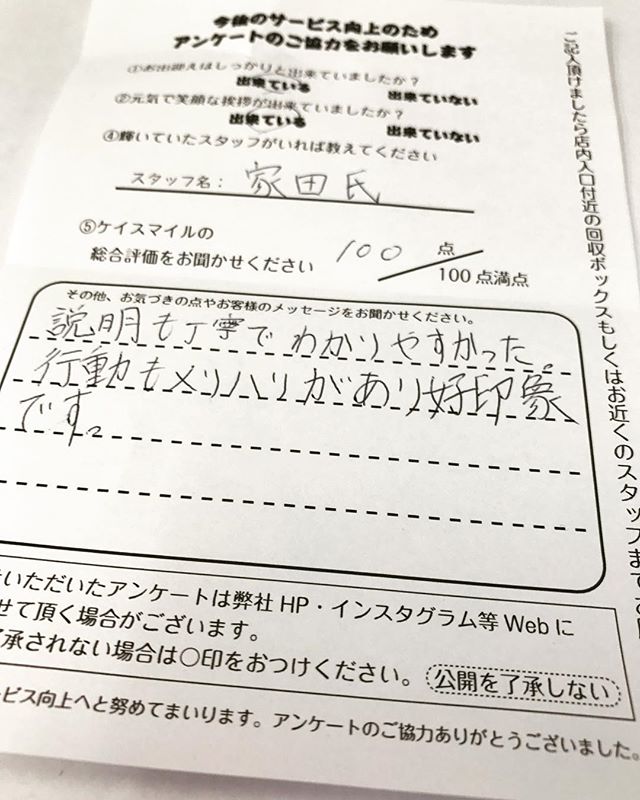 今後のサービス向上のため
アンケートのご協力をお願いします
①お出迎えはしっかりと出来ていましたか?
出来ている 出来ていない
②元気で笑顔な挨拶が出来ていましたか?
出来ている 出来ていない
④輝いていたスタッフがいれば教えてください
スタッフ名： 家田氏
⑤ケイスマイルの
総合評価をお聞かせください 100 点
100点満点
その他、お気づきの点やお客様のメッセージをお聞かせください。
説明も丁寧でわかりやすかった。
行動もメリハリがあり好印象
です。
いただいたアンケートは弊社HP・インスタグラム等Webに
せて頂く場合がございます。
承されない場合は○印をおつけください。 公開を了承しない
ービス向上へと努めてまいります。アンケートのご協力ありがとうございました。
ご記入頂けましたら店内入口付近の回収ボックスもしくはお近くのスタッフまで